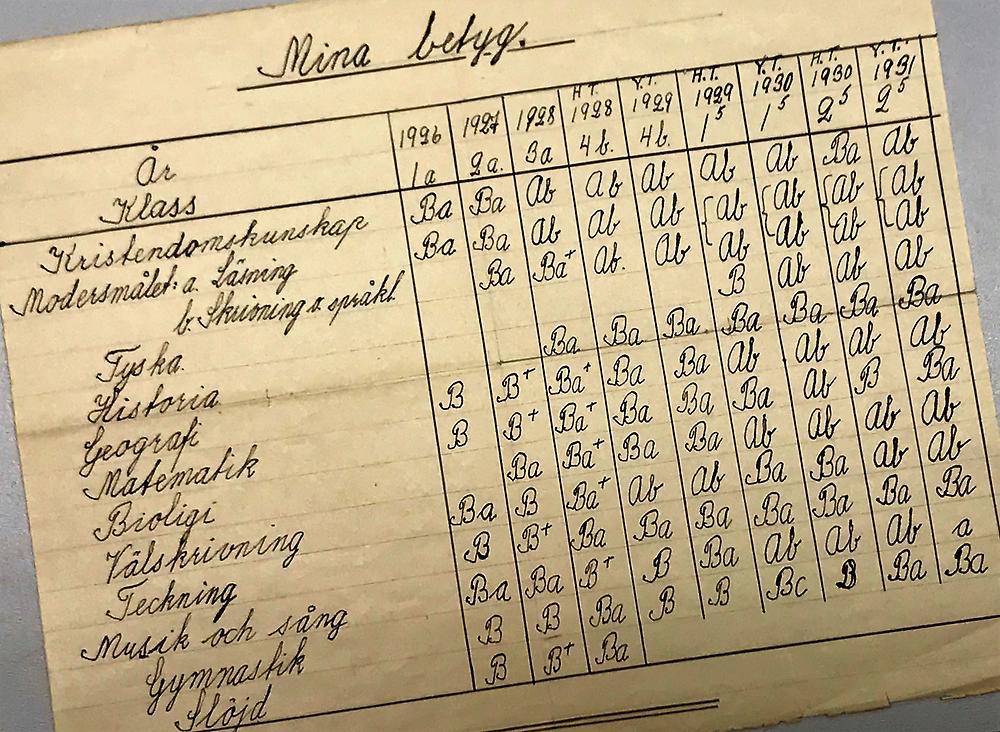 Mina betyg.
År 1926 1927 1928 H.T. 1928 V.T. 1929 H.T. 1929 V.T. 1930 H.T. 1930 V.T. 1931
Klass 1a 2a. 3a 4b. 4b. 1⁵ 1⁵ 2⁵ 2⁵
Kristendomskunskap Ba Ba Ab Ab Ab Ab Ab Ba Ab
Modersmålet: a. Läsning Ba Ba Ab Ab Ab { Ab { Ab { Ab { Ab
b. Skrivning o. språkl. Ba Ba+ Ab. Ab Ab Ab Ab Ab
Tyska. B Ab Ab Ab
Historia Ba Ba Ba Ba Ba Ba Ba
Geografi B B+ Ba+ Ba Ba Ab Ab Ab Ab
Matematik B B+ Ba+ Ba Ba Ba Ab B Ba
Bioligi Ba Ba+ Ba Ba Ab Ab Ab Ab
Välskrivning Ba B Ba+ Ab Ab Ba Ba Ab Ab
Teckning B B+ Ba Ba Ba Ba Ba Ba Ba
Musik och sång Ba Ba B+ B Ba Ab Ab Ab a
Gymnastik B B Ba B B Bc B Ba Ba
Slöjd B B+ Ba